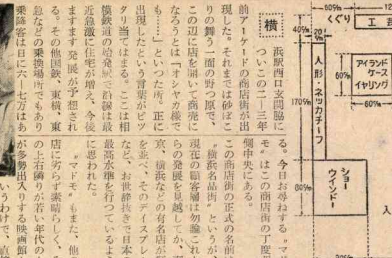 横
浜駅西口玄関脇に
ついこの二―三年
前アーケードの商店街が出
現した。それまでは砂ぼこ
りの舞う一面の野っ原で、
この辺に店を開いて商売に
なろうとは「オシャカ様で
も……」といつた所、正に
出現したという言葉がピッ
タリ当てはまる。ここは相
模鉄道の始発駅で沿線は最
近急激に住宅が増え、今後
ますます発展が予想され
る。その他国鉄、東横、東
急などの乗換場所でもあり
乗降客は日に六―七万はあ
る。今日お尋ねする〝マド
モ〟はこの商店街の丁度
側中央にある。
この商店街の正式の名前
〝横浜名品街〟というが
現在の顧客層は勿論これ
らの発展を見越してか、
京、横浜などの有名店が
を並べ、そのディスプレ
など、お世辞抜きで日本
最高水準を行つているよ
に思われた。
〝マドモ〟もまた、他
店に劣らず素晴らしく、
の上右隣りが若い年代の
が多勢出入りする映画館
いうわけで、直接
60%
12
くぐり
工
40%
20%
170%
人形・ネッカチーフ
アイランド
ケース
イヤリング
60%
60%
80%
ショーウインドー
入